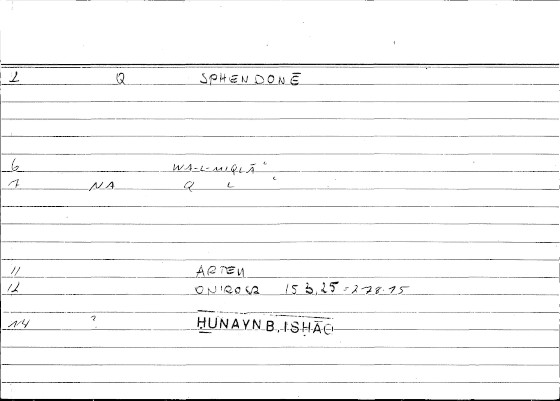 1 Q SPHENDONĒ
6 WA-L-MIQLĀʿ
7 NA Q L ʿ
11 ARTEM
12 ONIROCR 15 3,25 = 278.15
14 ? ḤUNAYN B. ISḤĀQ